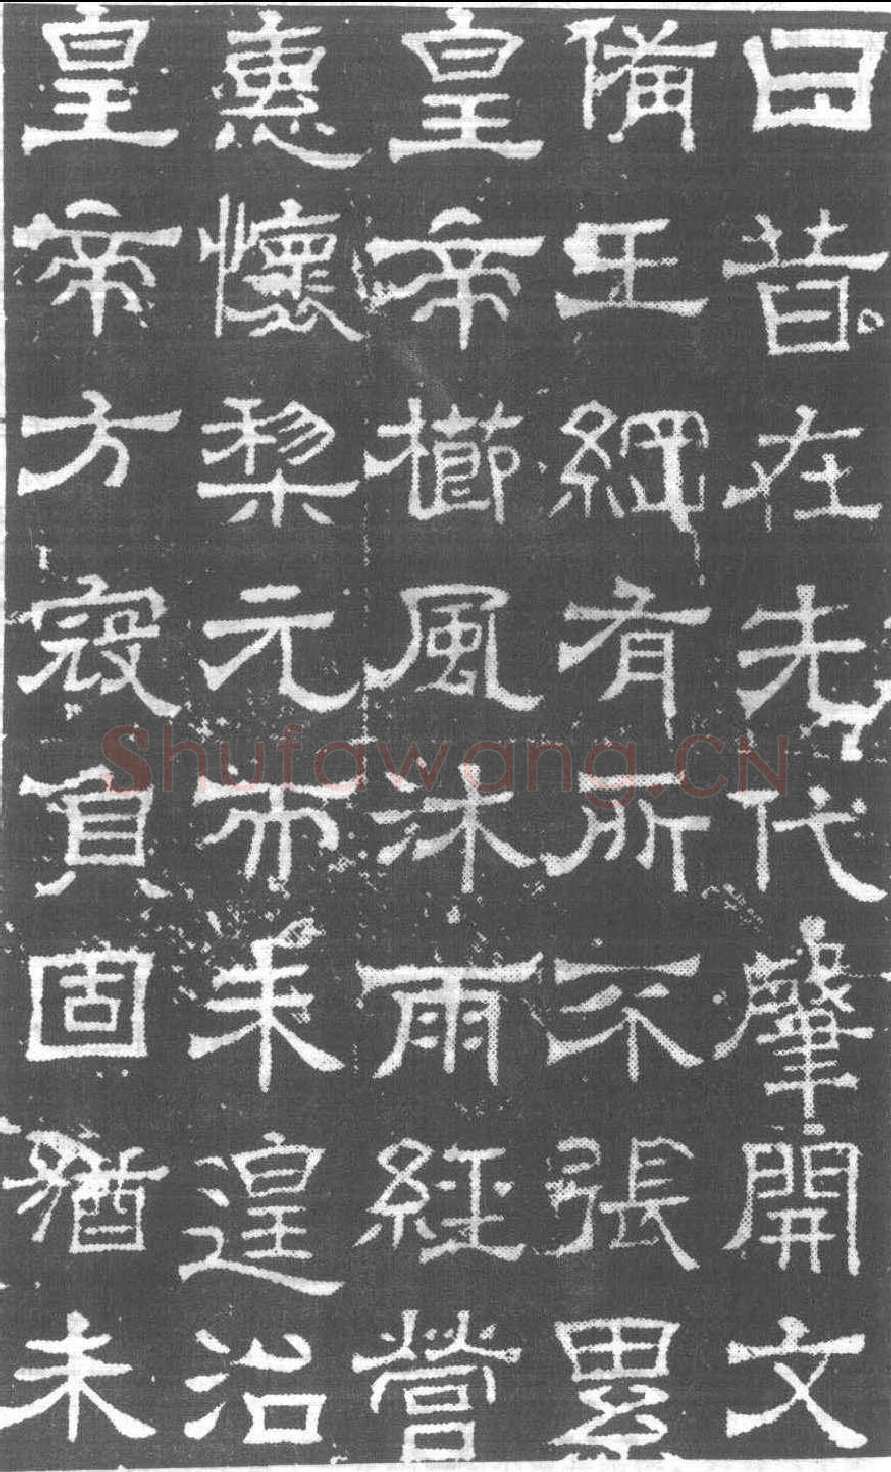 曰昔在先代肇開文
備王綱有所不張累
皇帝櫛風沐雨經營
惠懷黎元而未遑治
皇帝方寝負固猶未
Shufawang.CN